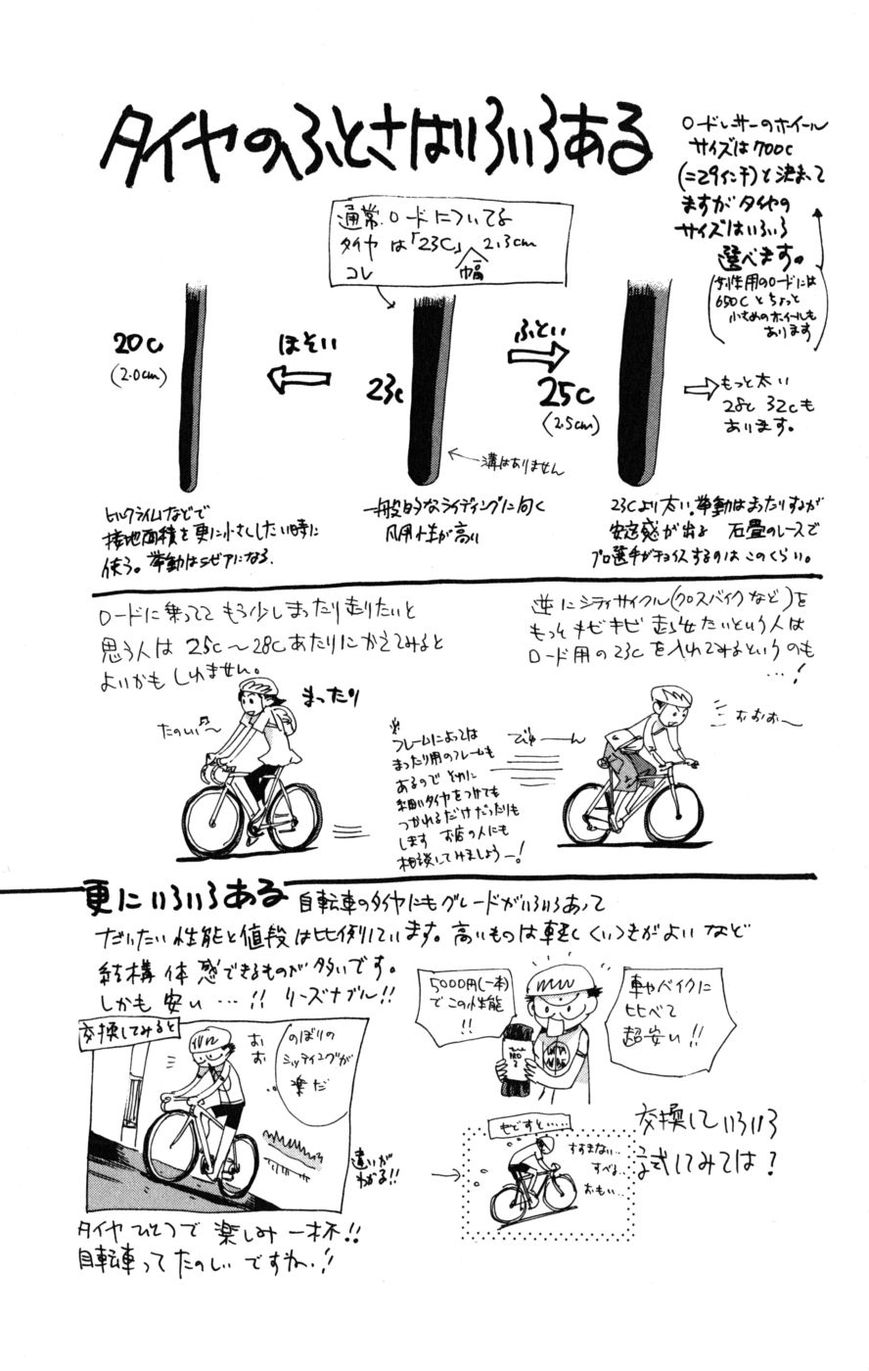 タイヤのふとさはいろいろある
ロードレーサーのホイール
サイズは700c
(=29インチ)と決まって
ますがタイヤの
サイズはいろいろ
選べます。
(女性用のロードには
650Cとちょっと
小さめのホイールも
あります)
通常ロードについてる
タイヤは「23C」 2.3cm
コレ 幅
20c
(2.0cm)
ほそい
23c
ふとい
25c
(2.5cm)
もっと太い
28c 32cも
あります。
溝はありません
ヒルクライムなどで
接地面積を更に小さくしたい時に
使う。挙動はシビアになる.
一般的なライディングに向く
汎用性が高い
23cより太い。挙動はまったりするが
安定感が出る 石畳のレースで
プロ選手がチョイスするのはこのくらい。
ロードに乗ってて もう少しまったり走りたいと
思う人は 25c〜28cあたりにかえてみると
よいかもしれません。
まったり
たのしい♪〜
逆にシティサイクル(クロスバイクなど)を
もっとキビキビ走らせたいという人は
ロード用の23cを入れてみるというのも
…!
※
フレームによっては
まったり用のフレームも
あるので とくに
細いタイヤをつけても
つかれるだけだったりも
します お店の人にも
相談してみましょうー!
びゅーーん
おおお〜
更にいろいろある
自転車のタイヤにもグレードがいろいろあって
だいたい性能と値段は比例しています。高いものは軽くくいつきがよいなど
結構体感できるものが多いです。
しかも安い…!! リーズナブル!!
5000円(一本)
でこの性能
!!
車やバイクに
比べて
超安い!!
交換してみると
おお
のぼりの
シッティングが
楽だ
違いが
わかる!!
もどすと……
すすまない…
すべる…
おもい…
交換していろいろ
試してみては?
タイヤひとつで 楽しみ一杯!!
自転車ってたのしいですねー!